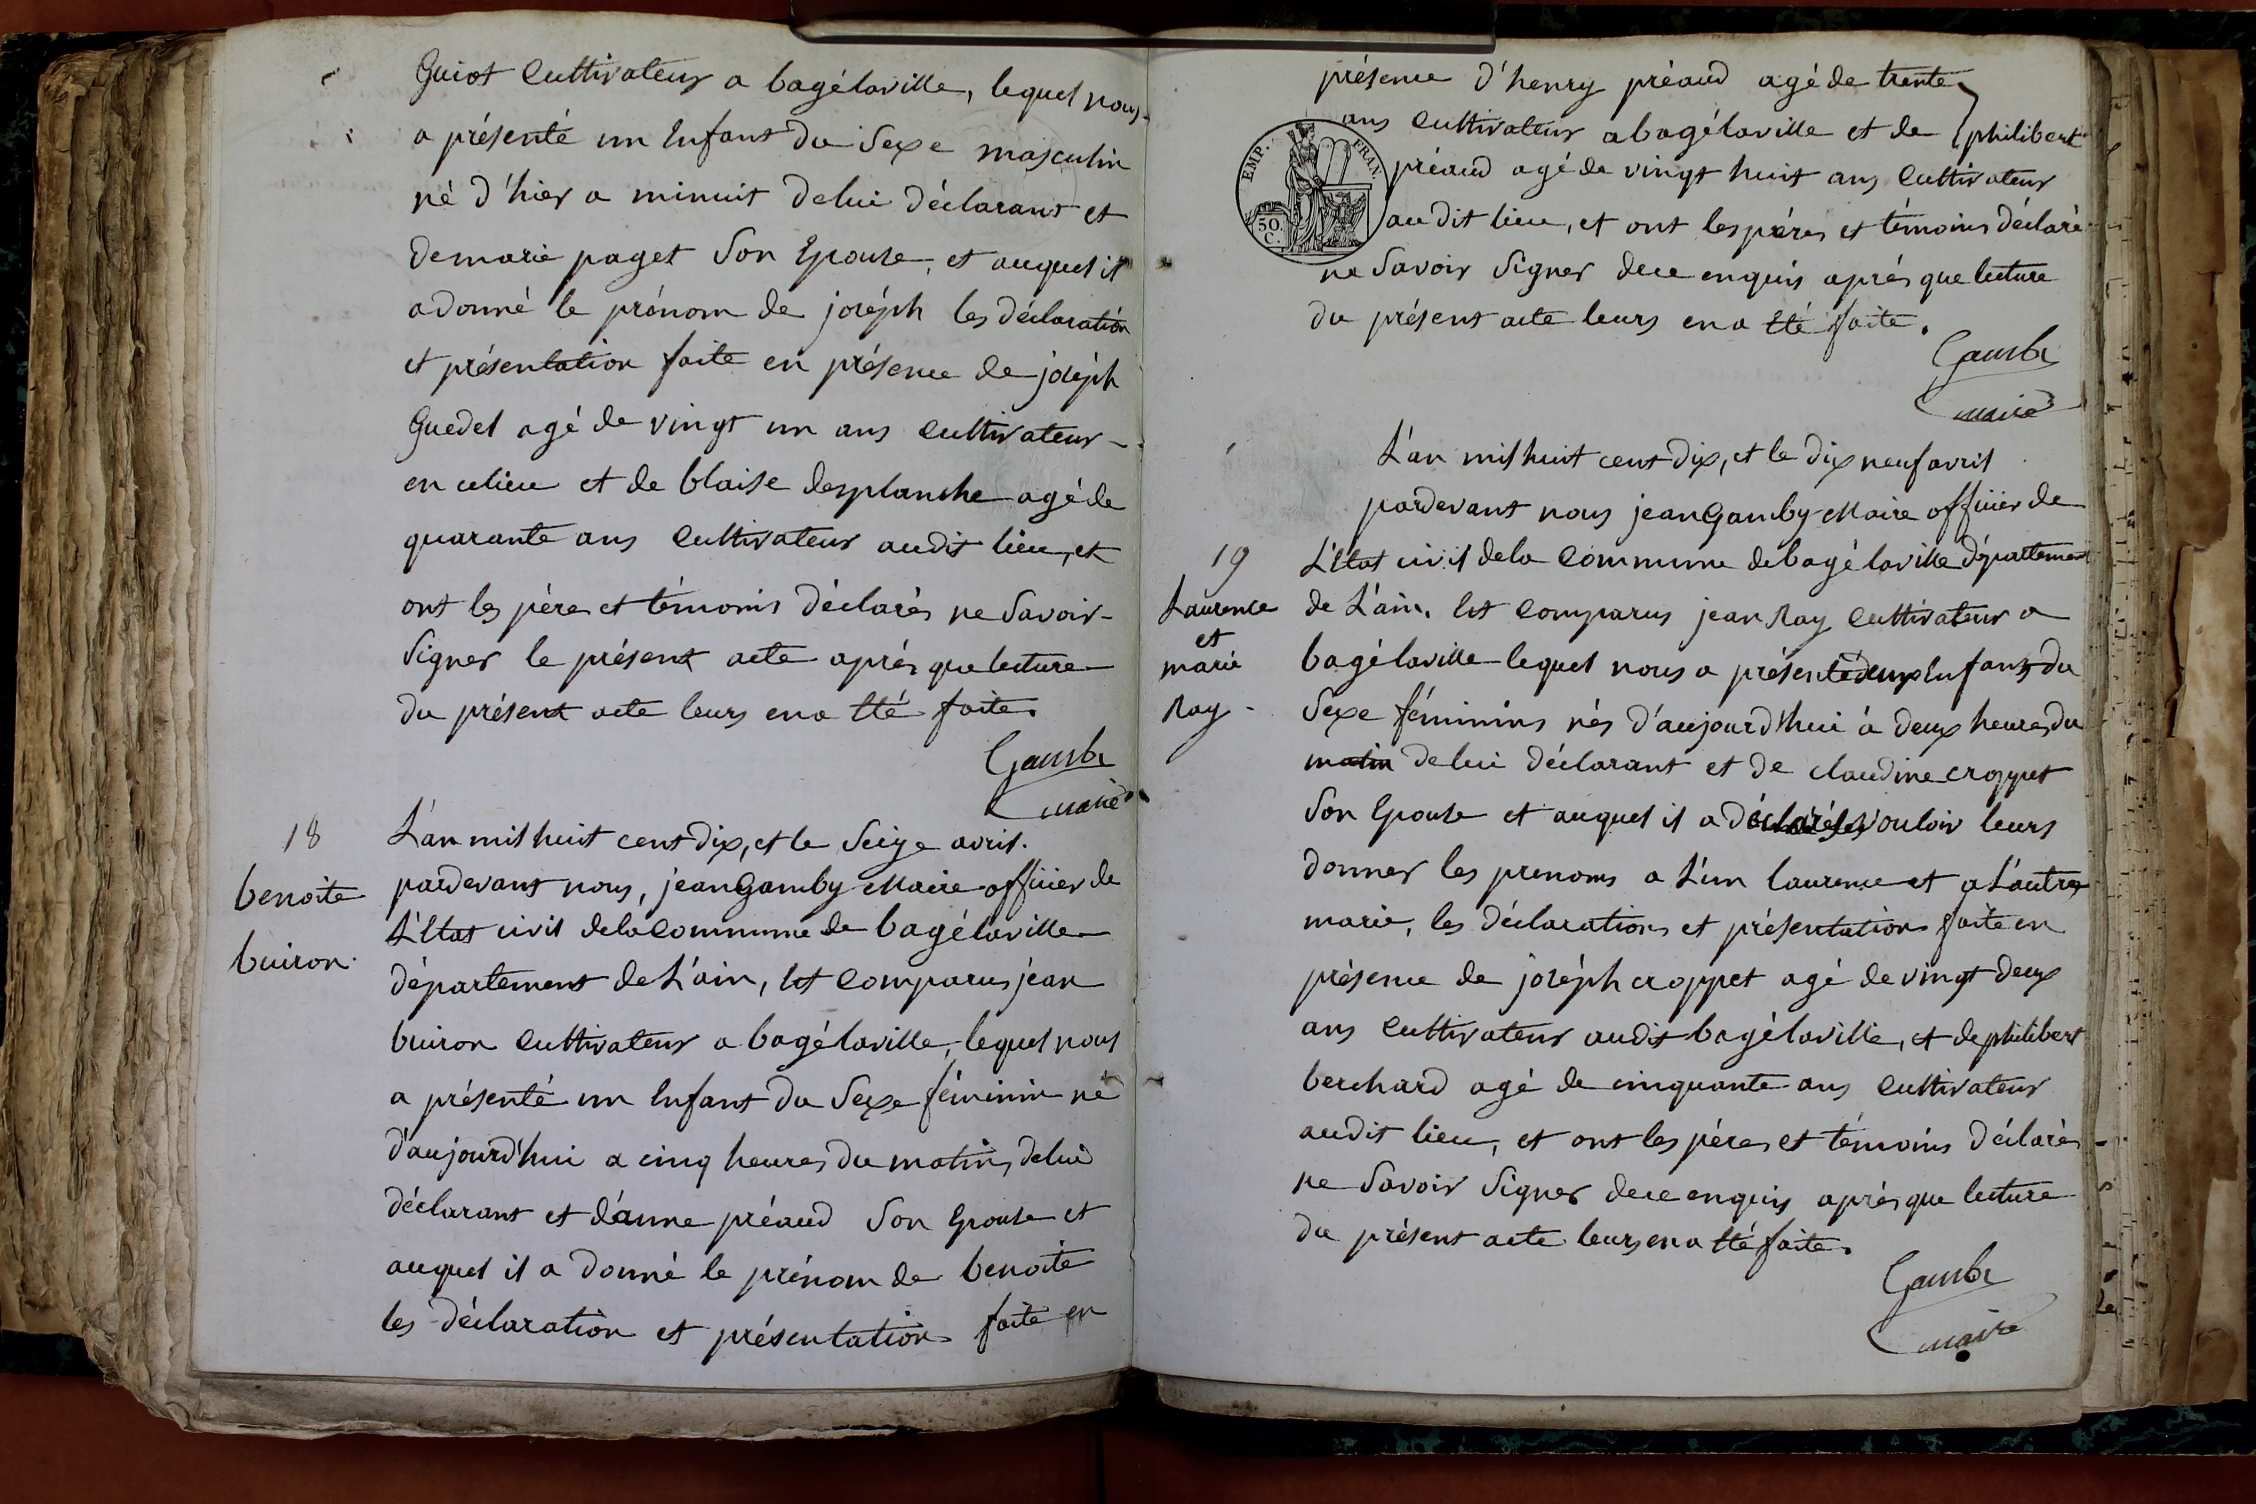 Guiot Cultivateur a bagélaville, lequel nous
a présenté un Enfant du Sexe masculin
né d'hier a minuit delui déclarant et
demarie paget Son Epouse, et auquel il
adonné le prénom de joséph les déclaration
et présentation faite en présence de joséph
Guedet agé de vingt un ans Cultivateur
en celieu et de blaise desplanche agé de
quarante ans Cultivateur audit lieu, et
ont les père et témoins déclarés ne Savoir
Signer le présent acte après que lecture
du présent acte leurs en a Eté faite.
Gambi
maire
18
benoite
buiron.
L'an mil huit cent dix, et le Seize avril.
pardevant nous, jean Gamby Maire officier de
L'Etat civil delaCommune de bagélaville
département de L'ain, Est Comparus jean
buiron Cultivateur a bagélaville, lequel nous
a présenté un Enfant du Sexe féminin né
d'aujourd'hui a cinq heures du matin, delui
déclarant et d'anne préaud Son Epouse et
auquel il a donné le prénom de benoite
les déclaration et présentation faite en
présence d'henry préaud agé de trente
ans Cultivateur abagélaville et de philibert
EMP. FRAN.
50. C.
préaud agé de vingt huit ans Cultivateur
audit lieu, et ont les pérés et témoins déclaré
ne Savoir Signer dece enquis après que lecture
du présent acte leurs en a Eté faite.
Gambi
maire
19
Laurence
et
marie
Ray
L'an mil huit cent dix, et le dix neuf avril
pardevant nous jean Gamby Maire officier de
L'Etat civil dela Commune debagélaville département
de L'ain, Est Comparus jean Ray Cultivateur a
bagélaville lequel nous a présenté deux Enfans du
Sexe féminins nés d'aujourd'hui à deux heures du
matin delui déclarant et de claudine croppet
Son Epouse et auquel il a déclaré vouloir leurs
donner les prenoms a L'un laurence et a L'autre
marie, les déclarations et présentations faite en
présence de joséph croppet agé de vingt deux
ans Cultivateur audit bagélaville, et de philibert
berchard agé de cinquante ans Cultivateur
audit lieu, et ont les péres et témoins déclarés
ne Savoir Signer dece enquis après que lecture
du présent acte leurs en a Eté faite.
Gambi
maire